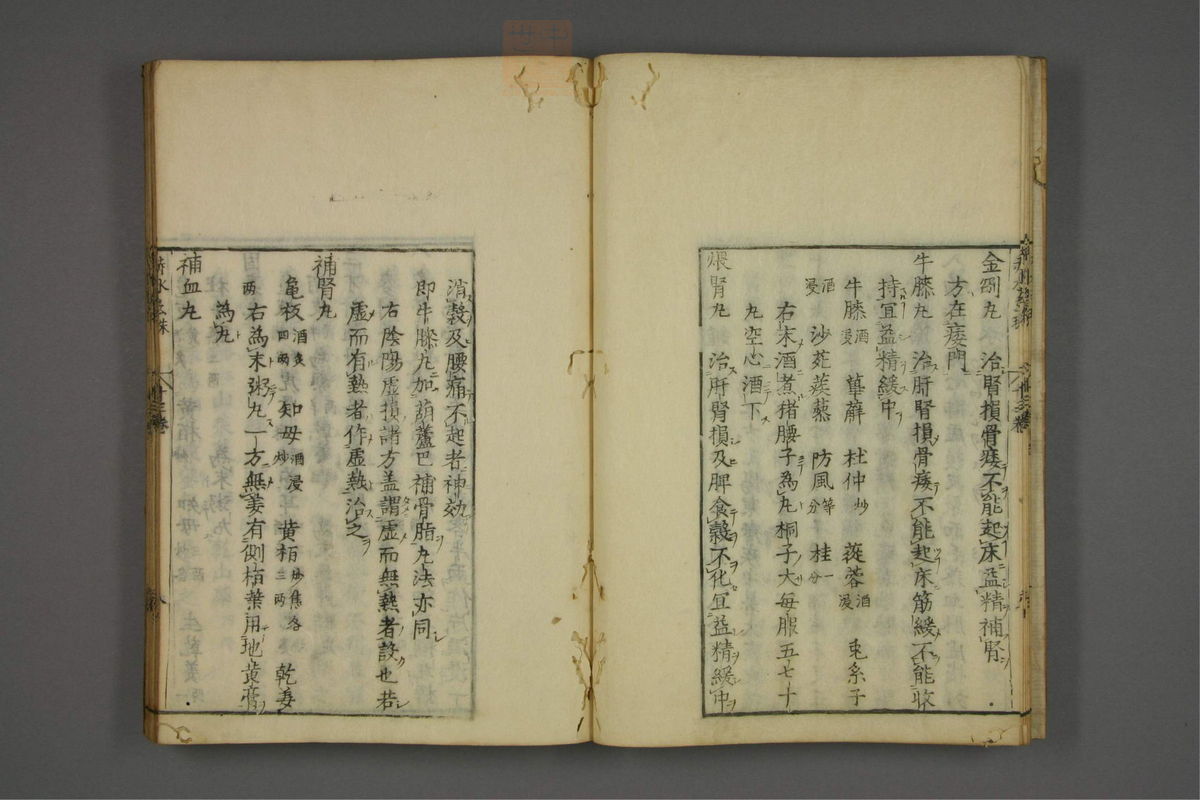 金剛丸 治腎損骨痿不能起床益精補腎
方在痿門
牛膝丸 治肝腎損骨痿不能起床筋緩不能收
持宜益精緩中
牛膝酒浸 萆薢 杜仲炒 蓯蓉酒浸 兎糸子
酒浸 沙苑蒺藜 防風等分 桂一分
右末酒煮猪腰子為丸桐子大每服五七十
丸空心酒下
煨腎丸 治肝腎損及脾食穀不化宜益精緩中
消穀及腰痛不起者神効
即牛膝丸加葫蘆巴補骨脂丸法亦同
右陰陽虚損諸方盖謂虚而無熱者設也若
虚而有熱者作虚熱治之
補腎丸
亀板酒炙四兩 知母酒浸炒 黄栢炒焦各三兩 乾姜
兩 右為末粥丸一方無姜有側栢葉用地黄膏
為丸
補血丸